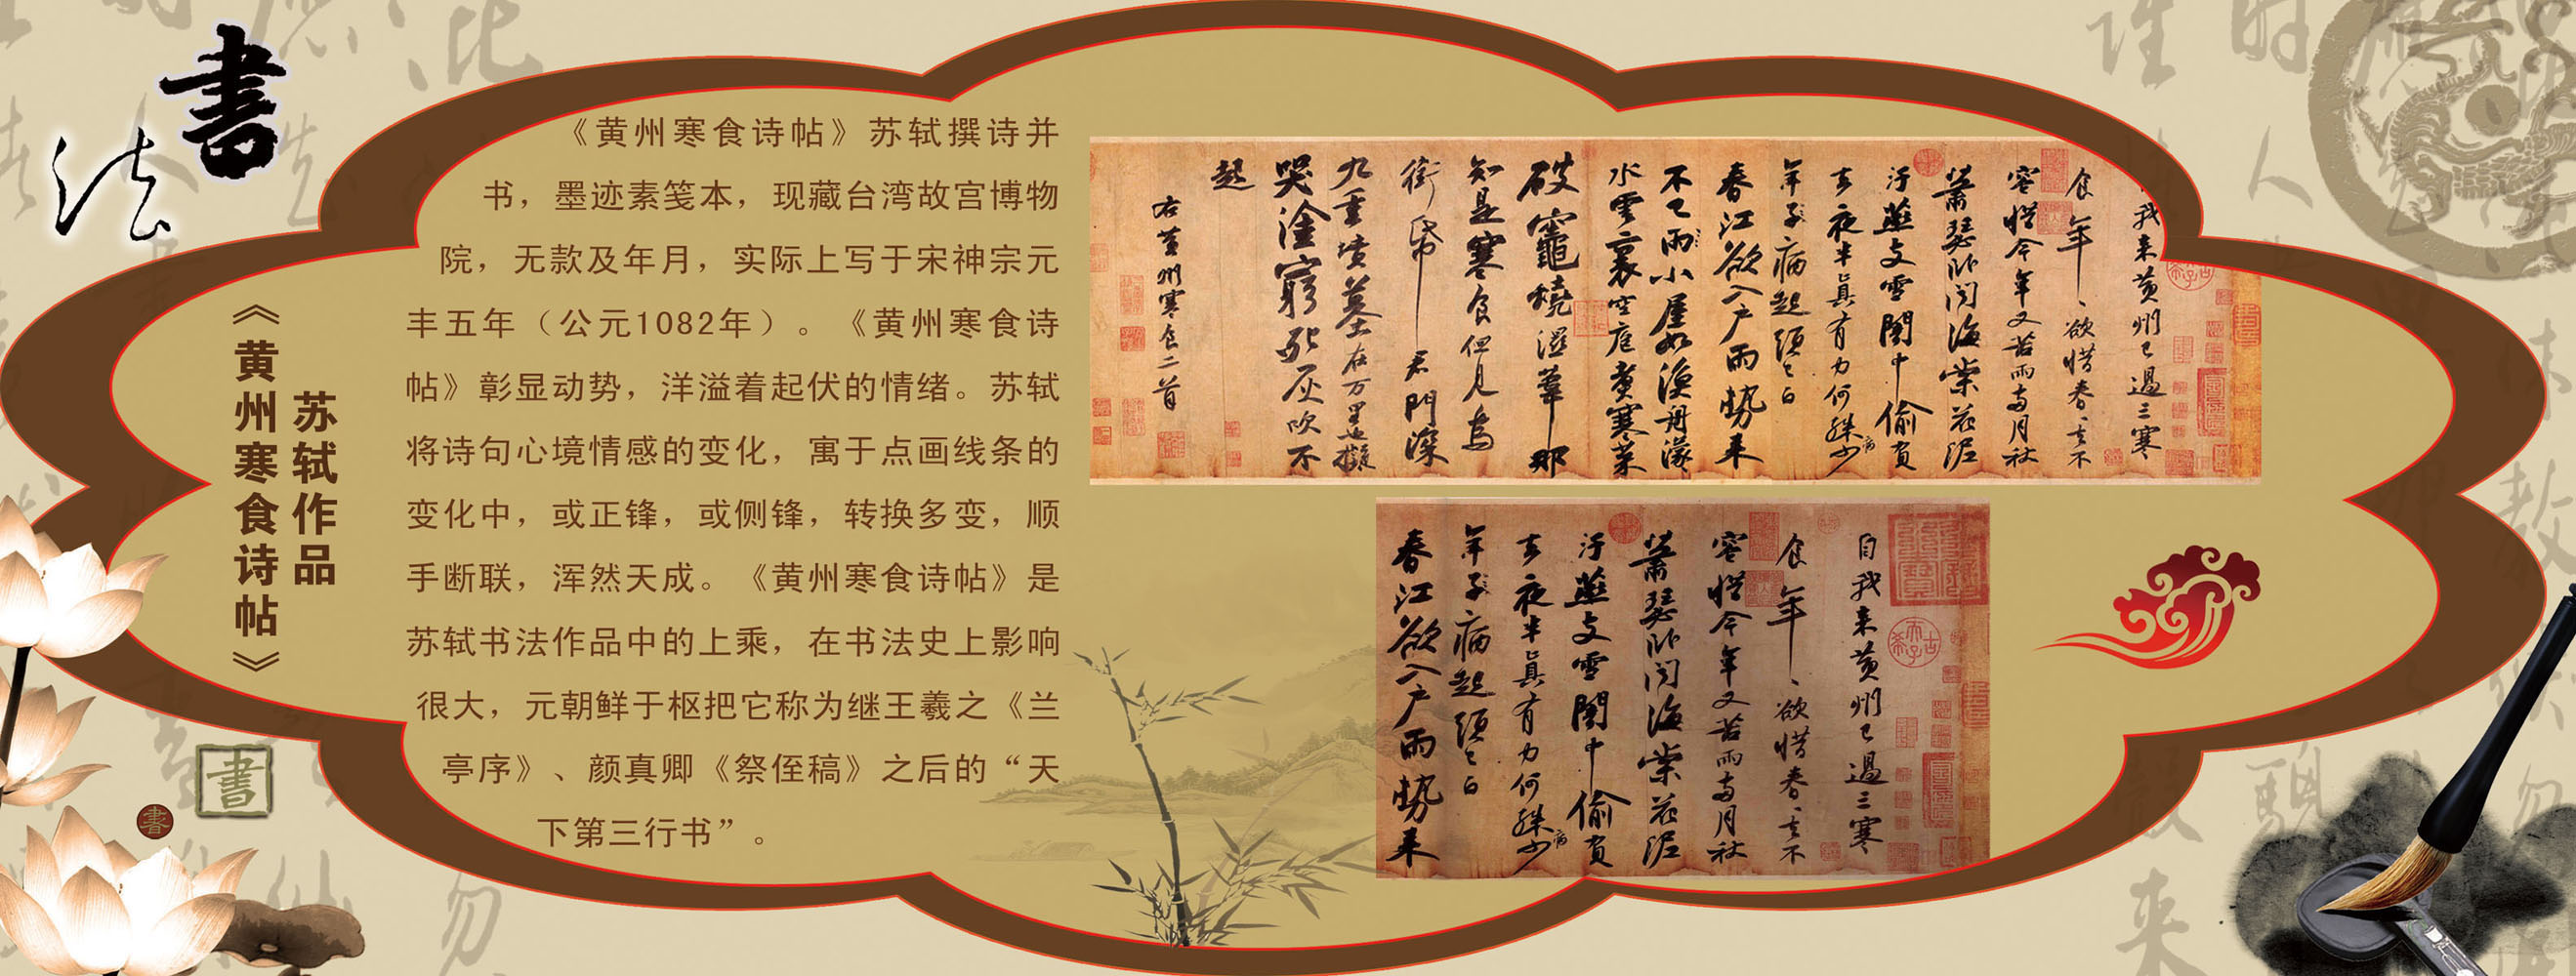 書
法
苏轼作品
《黄州寒食诗帖》
《黄州寒食诗帖》苏轼撰诗并
书，墨迹素笺本，现藏台湾故宫博物
院，无款及年月，实际上写于宋神宗元
丰五年（公元1082年）。《黄州寒食诗
帖》彰显动势，洋溢着起伏的情绪。苏轼
将诗句心境情感的变化，寓于点画线条的
变化中，或正锋，或侧锋，转换多变，顺
手断联，浑然天成。《黄州寒食诗帖》是
苏轼书法作品中的上乘，在书法史上影响
很大，元朝鲜于枢把它称为继王羲之《兰
亭序》、颜真卿《祭侄稿》之后的“天
下第三行书”。
我来黄州已過三寒
食年、欲惜春、去不
容惜今年又苦雨兩月秋
蕭瑟卧聞海棠花泥
汙燕支雪闇中偷負
去夜半真有力何殊少
年子病起須已白
春江欲入户雨勢来
不已雨小屋如漁舟濛
水雲裏空庖煮寒菜
破竈燒濕葦那
知是寒食但見烏
銜帋君門深
九重墳墓在万里也擬
哭塗窮死灰吹不
起
右黄州寒食二首
自我来黄州已過三寒
食年、欲惜春、去不
容惜今年又苦雨兩月秋
蕭瑟卧聞海棠花泥
汙燕支雪闇中偷負
去夜半真有力何殊少
年子病起須已白
春江欲入户雨勢来
書
書